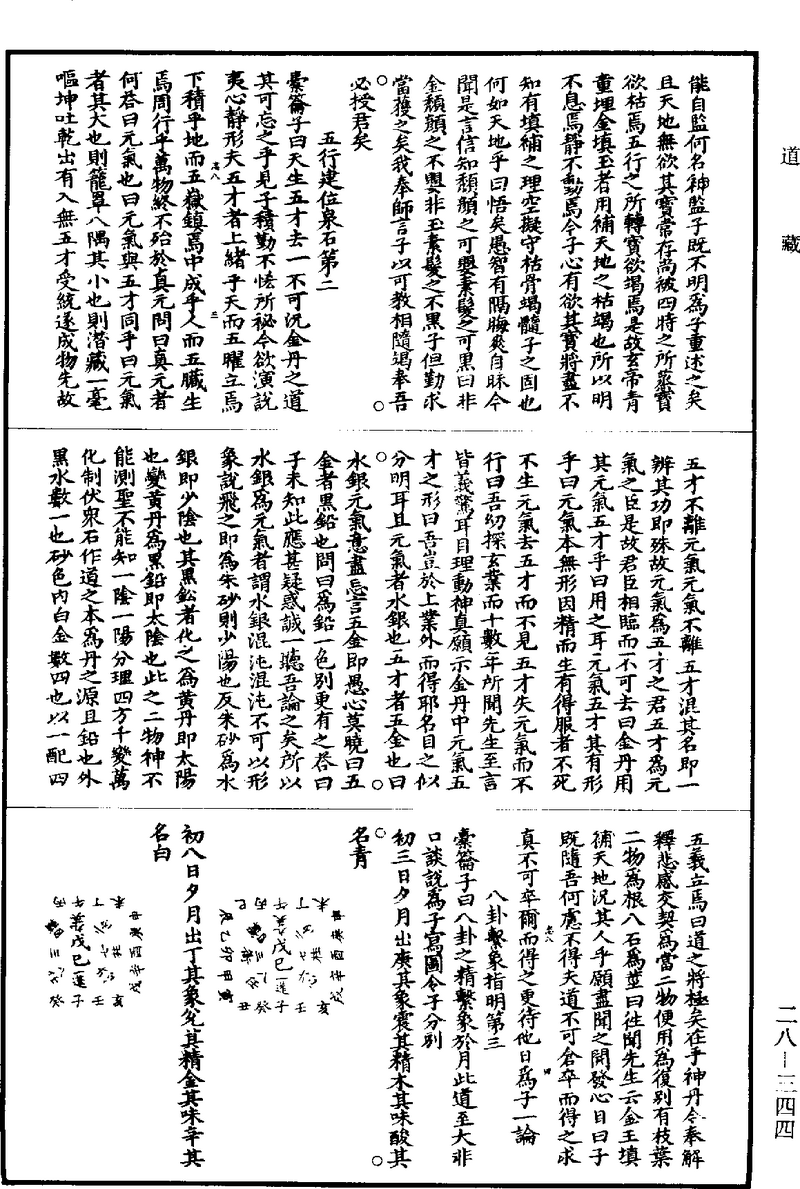 道藏
能自監何名神監子既不明爲子重述之矣
且天地無欲其寶常存尚被四時之所蒸寶
欲枯焉五行之所轉寶欲竭焉是故玄帝青
童埋金填玉者用補天地之枯竭也所以明
不息焉靜不動焉今子心有欲其寶將盡不
知有填補之理空擬守枯骨竭髓子之固也
何如天地乎曰悟矣愚智有隔晦爽自昧今
聞是言信知頹顏之可嬰素髮之可黒曰非
金頹顏之不嬰非玉素髮之不黒子但勤求
當獲之矣我奉師言子以可教相隨遏奉吾
必授君矣
五行建位泉石第二
橐籥子曰天生五才去一不可況金丹之道
其可忘之乎見子積勤不恡所秘今欲演說
夷心靜形夫五才者上緒乎天而五曜立焉
下積乎地而五嶽鎮焉中成乎人而五臟生
焉周行乎萬物終不殆於真元問曰真元者
何荅曰元氣也曰元氣與五才同乎曰元氣
者其大也則籠罩八隅其小也則潜藏一毫
嘔坤吐乾出有入無五才受統遂成物先故
五才不離元氣元氣不離五才混其名即一
辨其功即殊故元氣爲五才之君五才爲元
氣之臣是故君臣相臨而不可去曰金丹用
其元氣五才乎曰用之耳元氣五才其有形
乎曰元氣本無形因精而生有得服者不死
不生元氣去五才而不見五才失元氣而不
行曰吾幼探玄業而十數年所聞先生至言
皆義驚耳目理動神真願示金丹中元氣五
才之形曰吾豈於上業外而得耶名目之似
分明耳且元氣者水銀也五才者五金也曰
水銀元氣意盡忘言五金即愚心莫曉曰五
金者黒鉛也問曰爲鉛一色別更有之荅曰
子未知此應甚疑惑誠一聽吾論之矣所以
水銀爲元氣者謂水銀混沌混沌不可以形
象說飛之即爲朱砂則少陽也反朱砂爲水
銀即少陰也其黒鈆者化之爲黃丹即太陽
也變黃丹爲黒鉛即太陰也此之二物神不
能測聖不能知一陰一陽分理四方千變萬
化制伏衆石作道之本爲丹之源且鉛也外
黒水數一也砂色内白金數四也以一配四
五義立焉曰道之將極矣在乎神丹令奉解
釋悲感交契爲當二物便用爲復別有枝葉
二物爲根八石爲莖曰徃聞先生云金玉填
補天地況其人乎願盡聞之開發心目曰子
既隨吾何慮不得夫道不可倉卒而得之求
真不可卒爾而得之更待他日爲子一論
八卦繫象指明第三
橐籥子曰八卦之精繫象於月此道至大非
口談說爲子寫圖令子分別
初三日夕月出庚其象震其精木其味酸其
名青
初八日夕月出丁其象兊其精金其味辛其
名白
二八—三四四